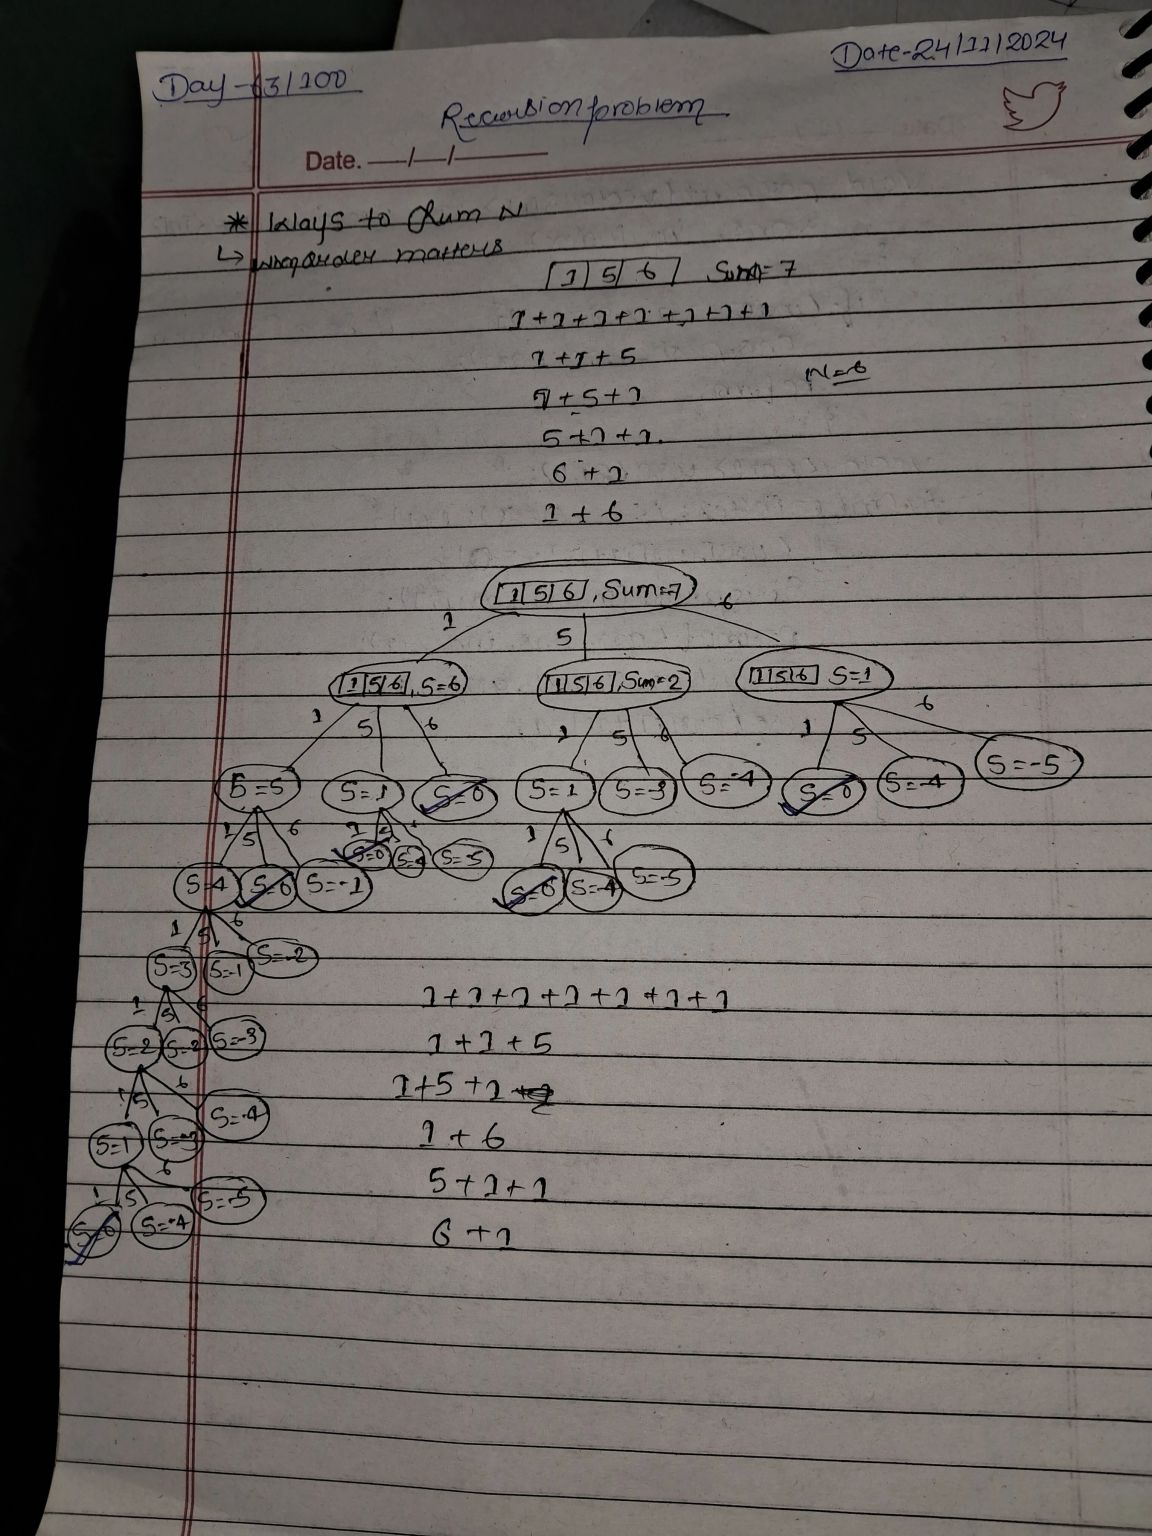 Day-63/100
Date-24/11/2024
Recursion problem
Date. —/—/———
* Ways to Sum N
↳ order matters
[1|5|6] Sum=7
1+1+1+1+1+1+1
1+1+5
N=6
1+5+1
5+1+1.
6+1
1+6
[1|5|6], Sum=7
1 5 6
[1|5|6], S=6 [1|5|6], Sum=2 [1|5|6] S=1
1 5 6 1 5 6 1 5 6
S=5 S=1 S=0 S=1 S=-3 S=-4 S=0 S=-4 S=-5
1 5 6 1 5 1 5 6
S=0 S=-5
S=4 S=0 S=-1 S=0 S=-4 S=-5
1 5 6
S=3 S=-1 S=-2
1 5 6
S=2 S=-2 S=-3
1 5 6
S=1 S=-3 S=-4
1 5 6
S=0 S=-4 S=-5
1+1+1+1+1+1+1
1+1+5
1+5+1
1+6
5+1+1
6+1